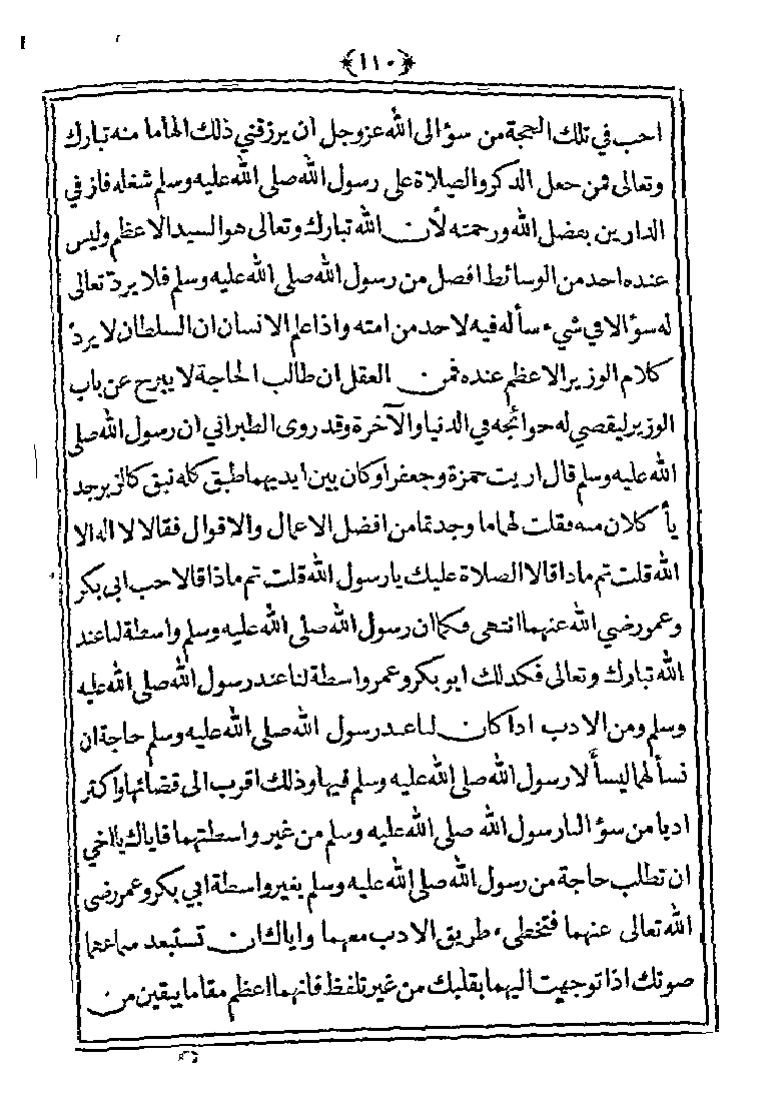 ﴿١١٠﴾
احب في تلك الحجة من سؤالى الله عزوجل ان يرزقني ذلك الهاما منه تبارك
وتعالى فمن جعل الذكر والصلاة على رسول الله صلى الله عليه وسلم شغله فاز في
الدارين بفضل الله ورحمته لأن الله تبارك وتعالى هو السيد الاعظم وليس
عنده احد من الوسائط افضل من رسول الله صلى الله عليه وسلم فلا يردّ تعالى
له سؤالا في شيء سأله فيه لاحد من امته واذا علم الانسان ان السلطان لا يردّ
كلام الوزير الاعظم عنده فمن العقل ان طالب الحاجة لا يبرح عن باب
الوزير ليقضي له حوائجه في الدنيا والآخرة وقد روى الطبراني ان رسول الله صلى
الله عليه وسلم قال اريت حمزة وجعفرا وكان بين ايديهما طبق كله نبق كالزبرجد
يأكلان منه فقلت لهما ما وجدتما من افضل الاعمال والاقوال فقالا لا اله الا
الله قلت ثم ماذا قالا الصلاة عليك يا رسول الله قلت ثم ماذا قالا حب ابي بكر
وعمر رضي الله عنهما انتهى فكما ان رسول الله صلى الله عليه وسلم واسطة لنا عند
الله تبارك وتعالى فكذلك ابو بكر وعمر واسطة لنا عند رسول الله صلى الله عليه
وسلم ومن الادب اذا كان لنا عند رسول الله صلى الله عليه وسلم حاجة ان
نسألهما ليسألا رسول الله صلى الله عليه وسلم فيها وذلك اقرب الى قضائها واكثر
ادبا من سؤالنا رسول الله صلى الله عليه وسلم من غير واسطتهما فاياك يا اخي
ان تطلب حاجة من رسول الله صلى الله عليه وسلم بغير واسطة ابي بكر وعمر رضى
الله تعالى عنهما فتخطىء طريق الادب معهما واياك ان تستبعد سماعهما
صوتك اذا توجهت اليهما بقلبك من غير تلفظ فانهما اعظم مقاما بيقين من